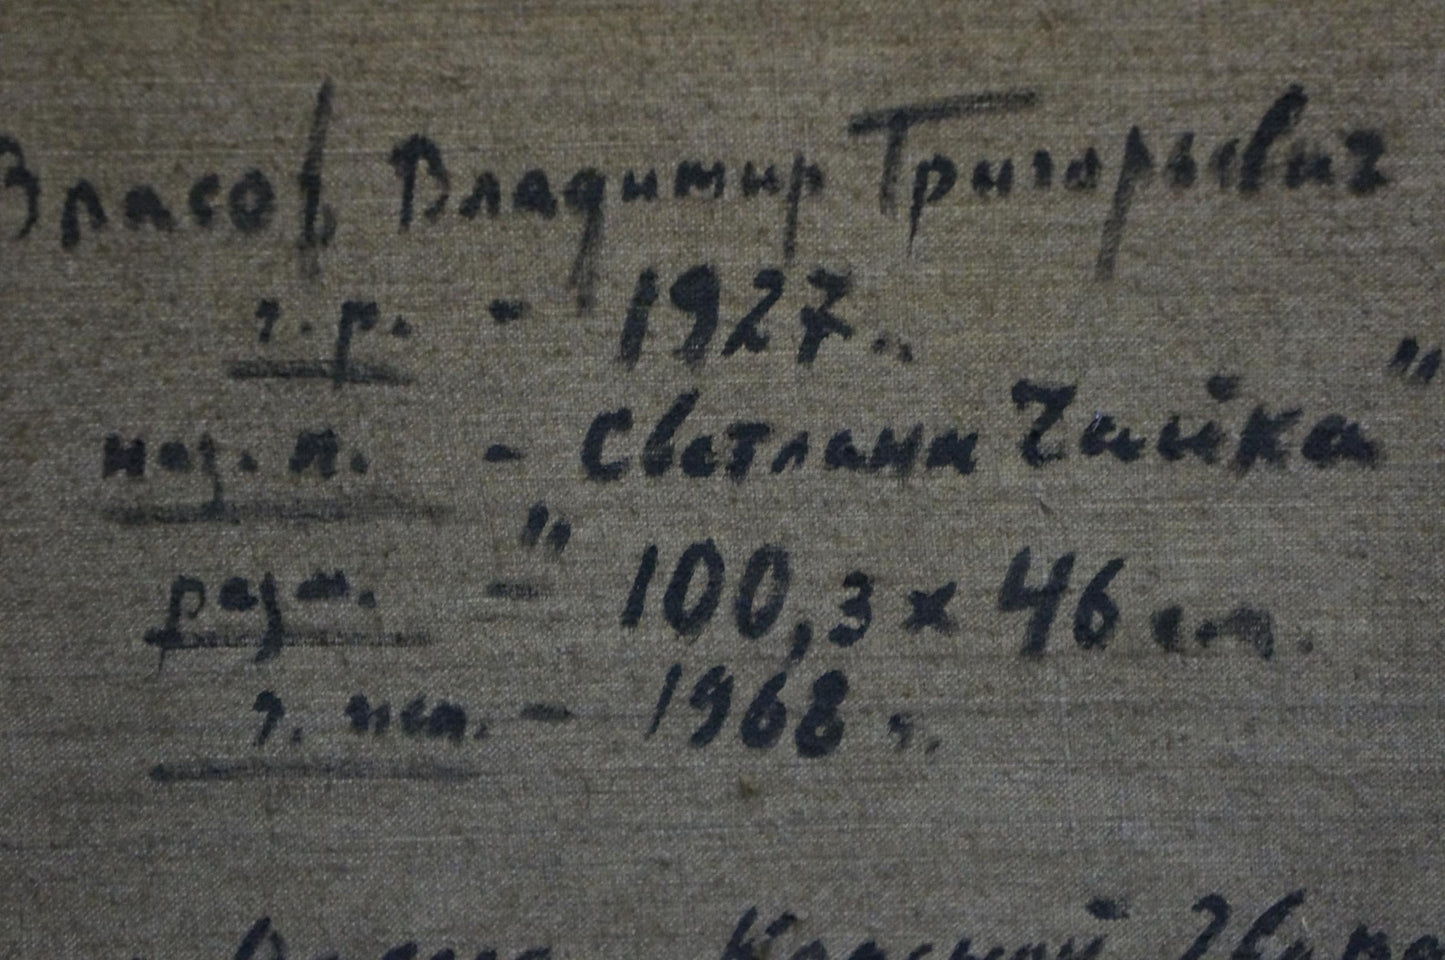 Власов Владимир Григорьевич
г.р. - 1927..
наз. п. - „Светлана Чайка"
разм. - 100,3 x 46 см.
г. исп. - 1968 г.
Красной